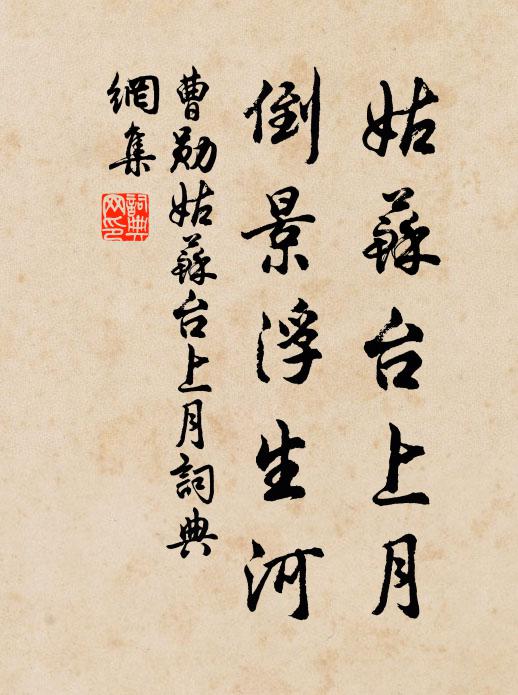 姑蘇台上月
倒景浮生河
曹勛姑蘇台上月詞典
網集
詞典
网印